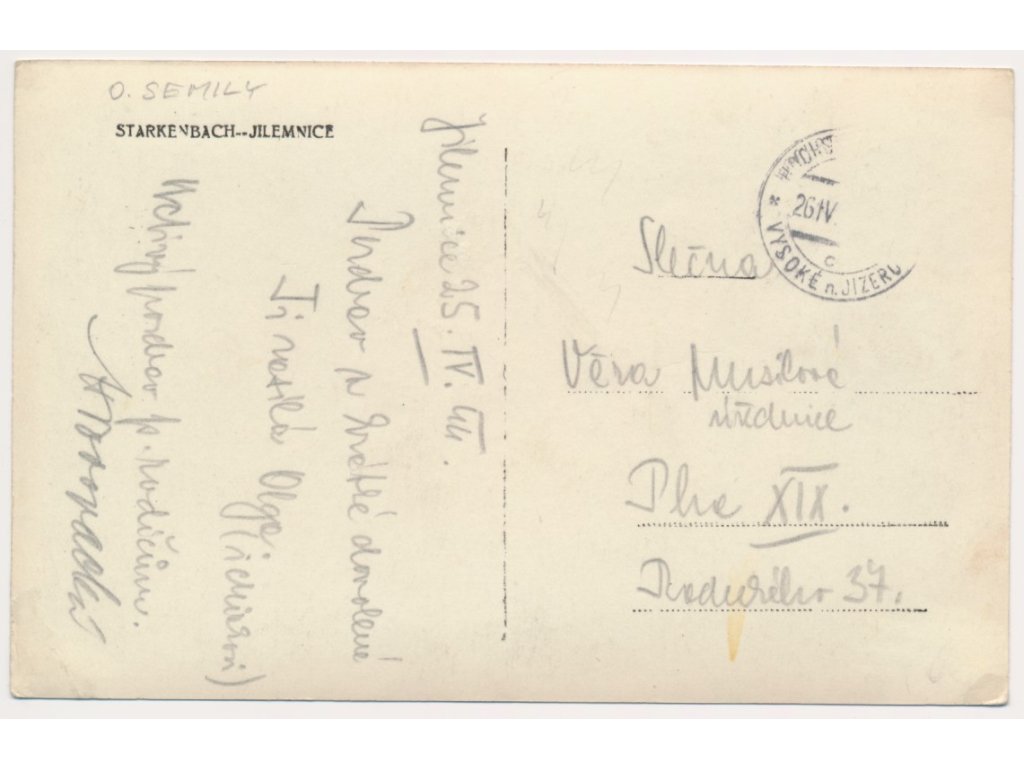 O. SEMILY
STARKENBACH--JILEMNICE
Jilemnice 25. IV. 44.
Pozdrav z krátké dovolené
Ti zasílá Olga.
Uctivý pozdrav p. rodičům.
HOCHST
26 IV
c
* VYSOKÉ n. JIZEROU
Slečna
Věra Musilová
úřednice
Pha XIX.
37.